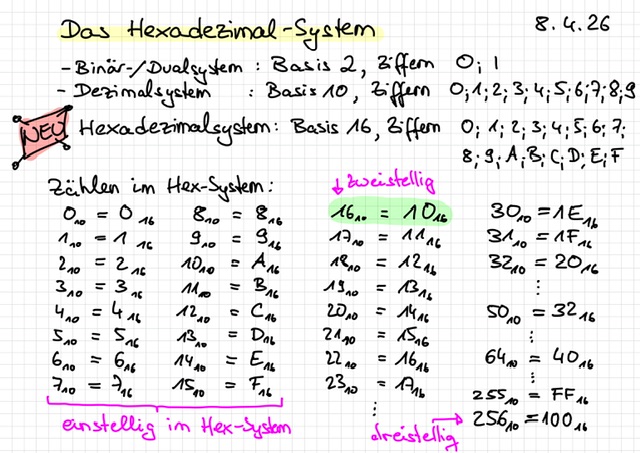 Das Hexadezimal-System 8.4.26
- Binär-/Dualsystem : Basis 2, Ziffern 0; 1
- Dezimalsystem : Basis 10, Ziffern 0;1;2;3;4;5;6;7;8;9
NEU Hexadezimalsystem: Basis 16, Ziffern 0; 1; 2; 3; 4; 5; 6; 7;
8; 9; A; B; C; D; E; F
Zählen im Hex-System:
↓zweistellig
0₁₀ = 0₁₆
1₁₀ = 1₁₆
2₁₀ = 2₁₆
3₁₀ = 3₁₆
4₁₀ = 4₁₆
5₁₀ = 5₁₆
6₁₀ = 6₁₆
7₁₀ = 7₁₆
8₁₀ = 8₁₆
9₁₀ = 9₁₆
10₁₀ = A₁₆
11₁₀ = B₁₆
12₁₀ = C₁₆
13₁₀ = D₁₆
14₁₀ = E₁₆
15₁₀ = F₁₆
einstellig im Hex-System
16₁₀ = 10₁₆
17₁₀ = 11₁₆
18₁₀ = 12₁₆
19₁₀ = 13₁₆
20₁₀ = 14₁₆
21₁₀ = 15₁₆
22₁₀ = 16₁₆
23₁₀ = 17₁₆
⋮
30₁₀ = 1E₁₆
31₁₀ = 1F₁₆
32₁₀ = 20₁₆
⋮
50₁₀ = 32₁₆
⋮
64₁₀ = 40₁₆
⋮
255₁₀ = FF₁₆
dreistellig → 256₁₀ = 100₁₆